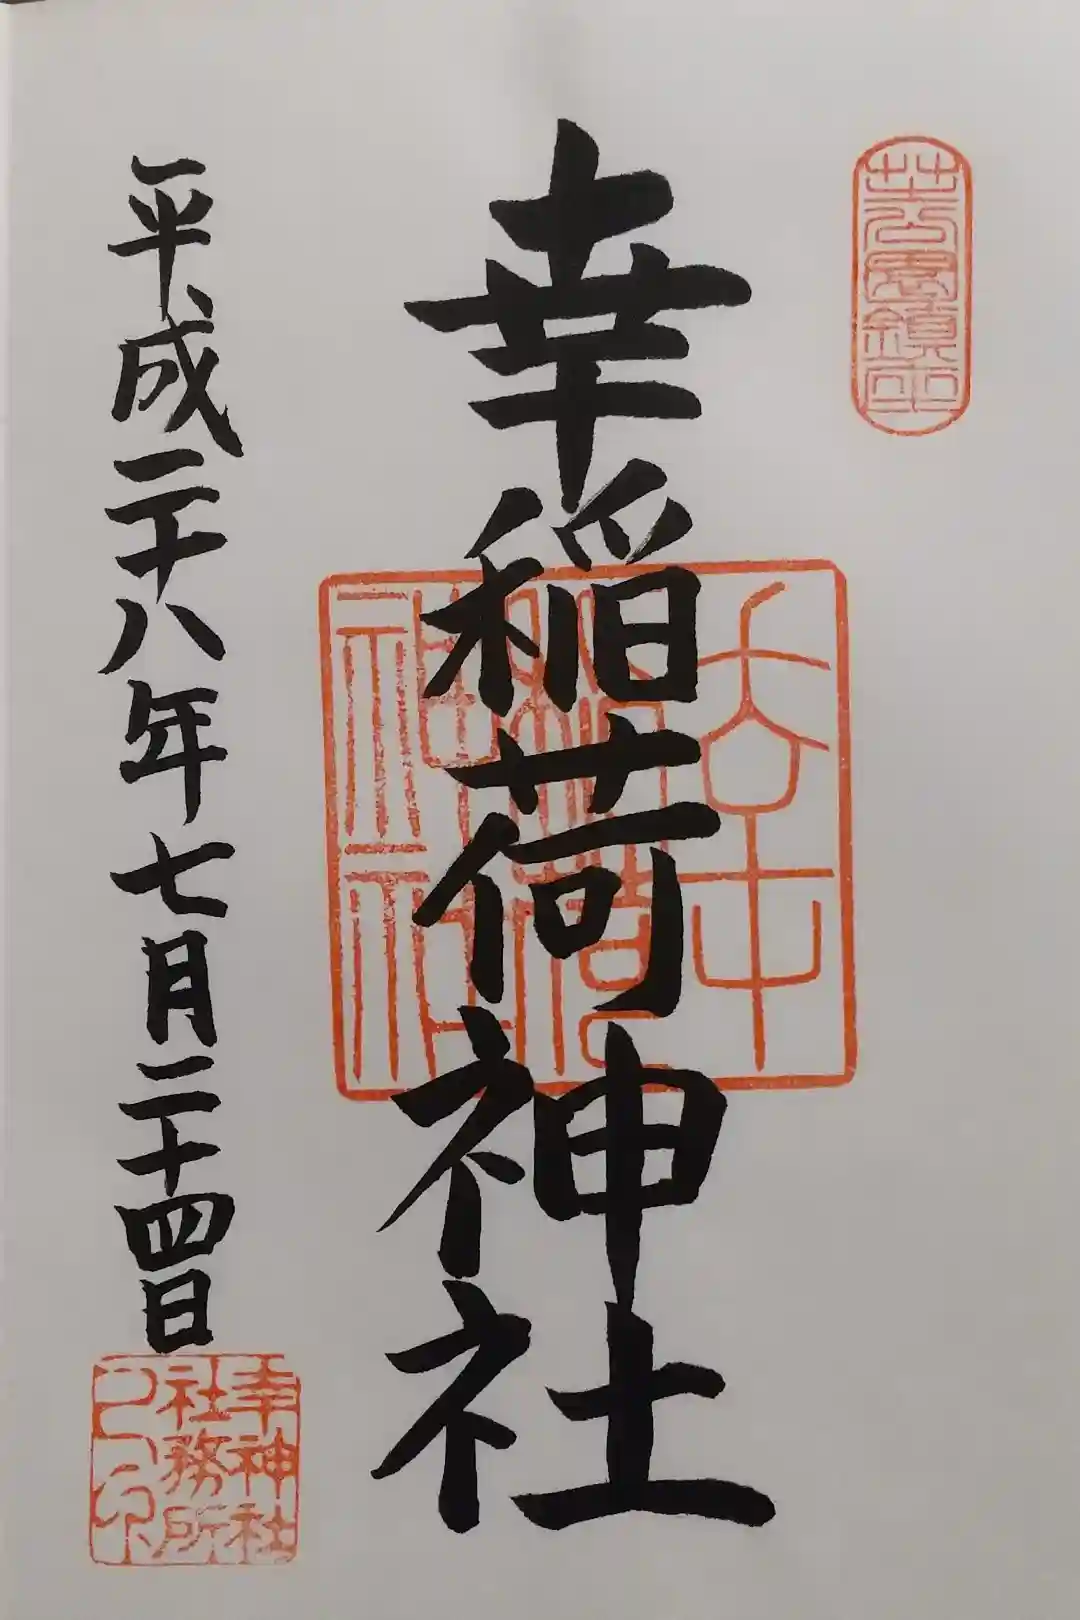 芝公園鎮座
幸稲荷神社
幸稲荷神社
平成二十八年七月二十四日
幸神社
社務所
之印